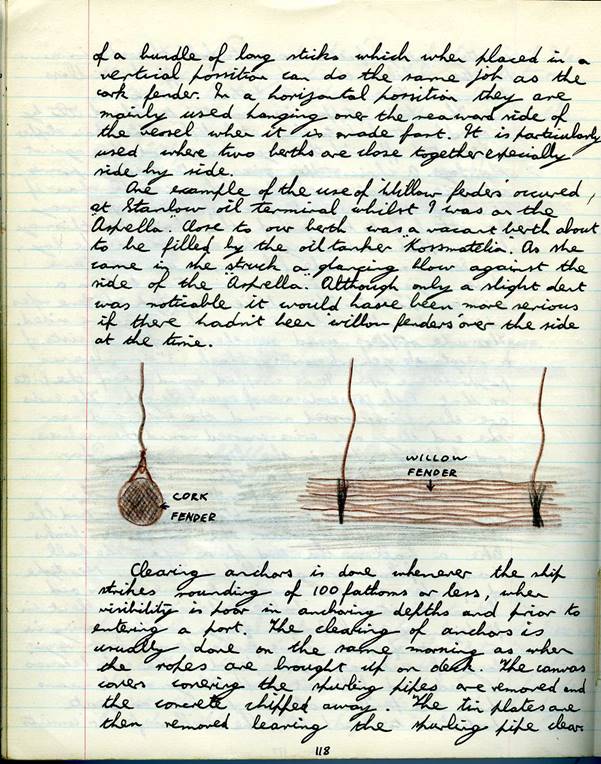 of a bundle of long sticks which when placed in a
vertical possition can do the same job as the
cork fender. In a horizontal possition they are
mainly used hanging over the seaward side of
the vessel when it is made fast. It is particularly
used where two berths are close together especially
side by side.
One example of the use of 'Willow fenders' occured,
at Stanlow oil terminal whilst I was on the
'Asprella'. Close to our berth was a vacant berth about
to be filled by the oil tanker 'Kossmatelia'. As she
came in she struck a glancing blow against the
side of the 'Asprella'. Although only a slight dent
was noticable it would have been more serious
if there hadn't been 'willow fenders' over the side
at the time.
CORK
FENDER
WILLOW
FENDER
Clearing anchors is done whenever the ship
strikes sounding of 100 fathoms or less, when
visibility is poor in anchoring depths and prior to
entering a port. The clearing of anchors is
usually done on the same morning as when
the ropes are brought up on deck. The canvas
covers covering the spurling pipes are removed and
the concrete chipped away. The tin plates are
then removed leaving the spurling pipe clear.
118